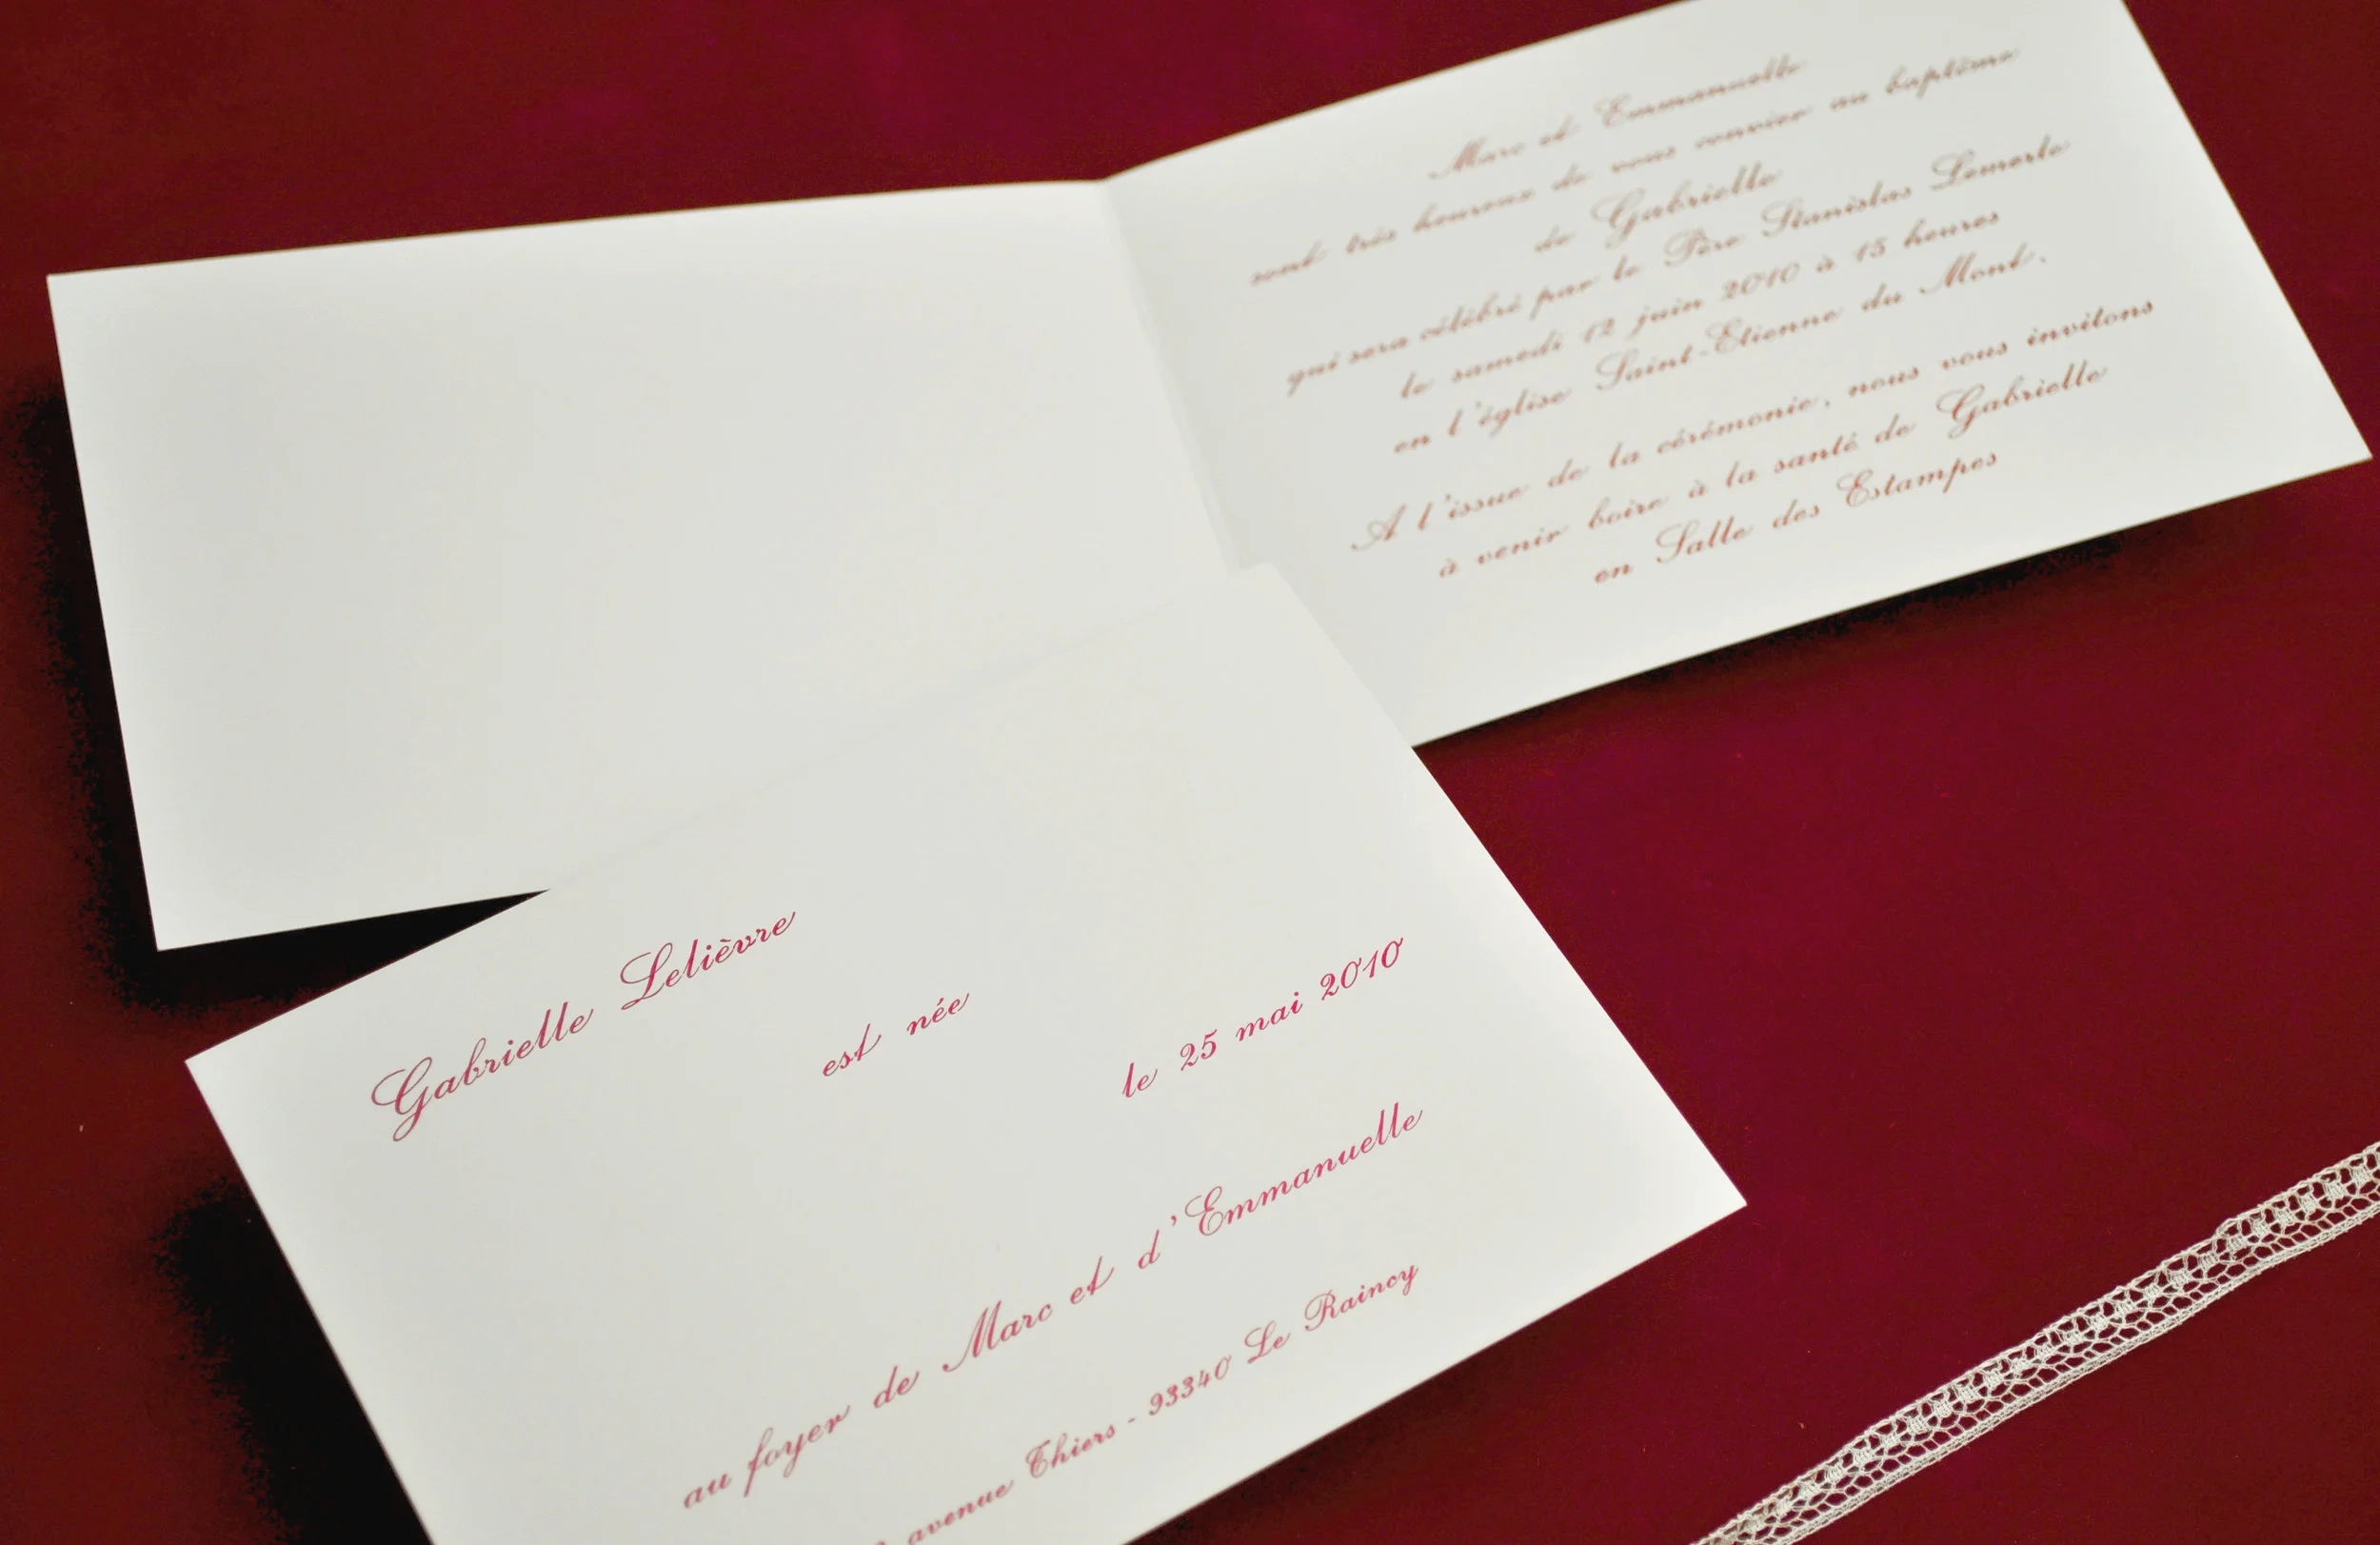 Marc et Emmanuelle
sont très heureux de vous convier au baptême
de Gabrielle
qui sera célébré par le Père Stanislas Lemerle
le samedi 12 juin 2010 à 15 heures
en l'église Saint-Etienne du Mont.
A l'issue de la cérémonie, nous vous invitons
à venir boire à la santé de Gabrielle
en Salle des Estampes
Gabrielle Lelièvre
est née
le 25 mai 2010
au foyer de Marc et d'Emmanuelle
avenue Thiers - 93340 Le Raincy